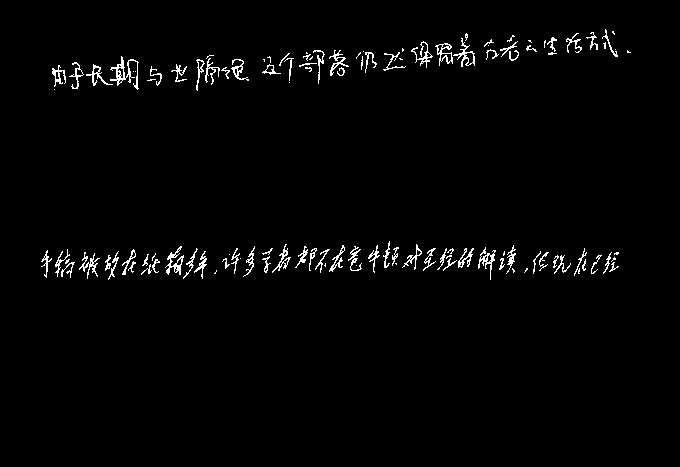 由于长期与世隔绝这个部落仍然保留着古老的生活方式.
手稿被放在纸箱多年,许多学者都不在意牛顿对圣经的解读,但现在已经